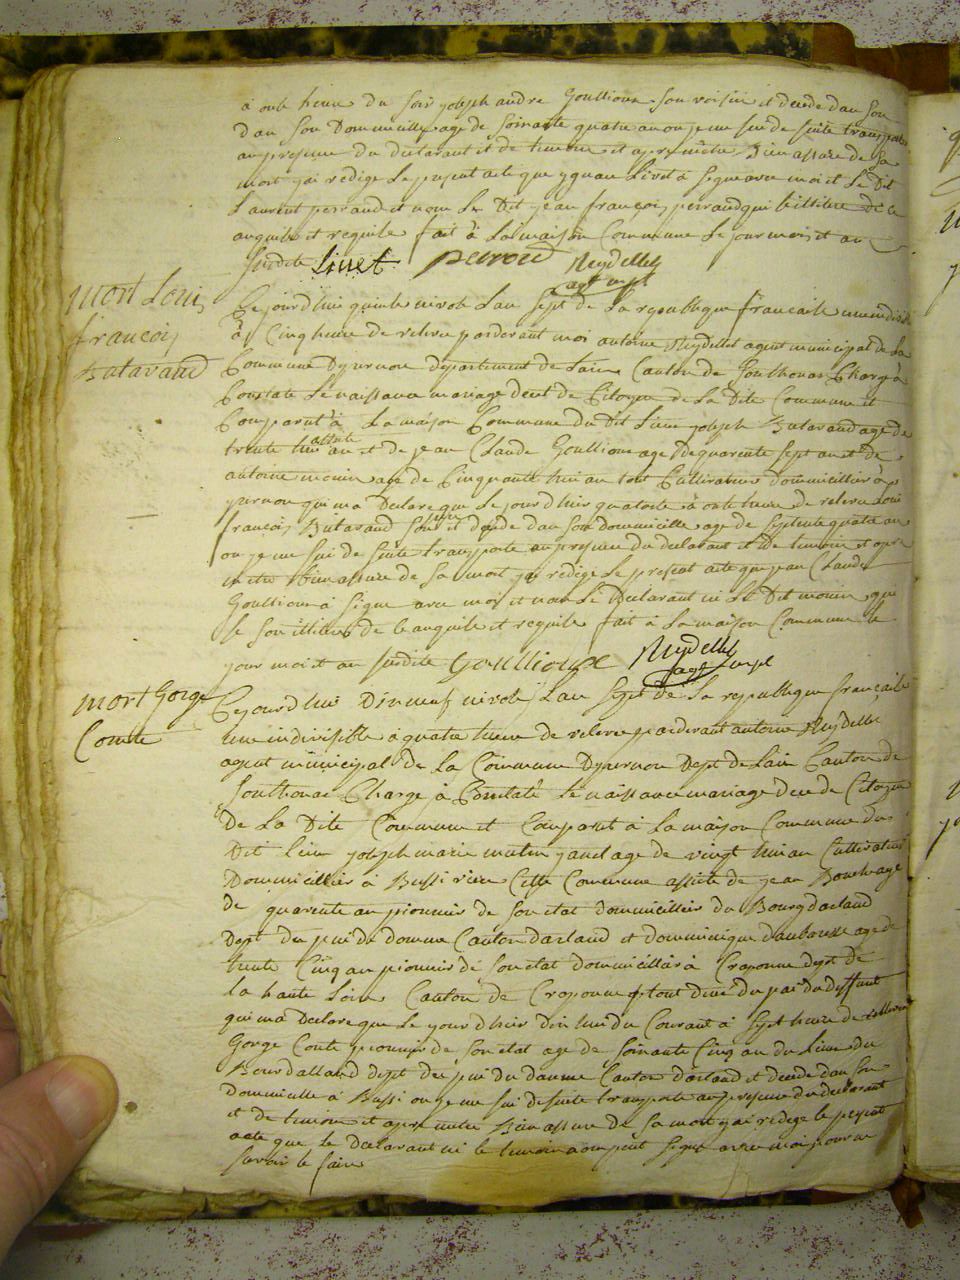 à onze heure du soir joseph andre Goullioux son voisin et decede dan son
dan son Dommicille age de soixante quatre an ou je me sui de suite transporte
au presence du declarant et de temoin et apre m'etre bien assure de sa
mort jai redige le present acte que ygnau Livet à signe avec moi et le dit
Laurent perraud et non le Dit jean françois perraud qui
enquile et requile fait à la maison Commune le jour moi et an
susdite Livet perroud Neydellet
agt mpl
mort Loui
françoi
Butavand
Ce jourd'hui quinze nivose Lan sept de la republique francaise une indivisible
à Cinq heure de relevee pardevant moi antoine Neydellet agent municipal de la
Commune Dyzernon departement de Lain Canton de Sonthonax Charge à
Constate le naissance mariage deces de Citoyen de la Dite Commune et
Comparut à La maison Commune du Dit Lieu joseph Butavand age de
trente hui an et de jean Claude Goullioux age de quarente sept an et de
antoine monin age de Cinquante hui an tout Cultivateur dommicillier à
yzernon qui ma Declare que Le jourd'hier quatorze à onze heure de relevee Loui
françoi Butavand son et decede dan son dommicille age de septente quatre an
ou je me sui de suite transporte au presence du declarant et de temoin et apre
metre bien assure de sa mort jai redige le present acte que jean Claude
Goullioux à signe avec moi et non le Declarant ni le Dit monin que
de enquile et requile fait à la maison Commune le
jour moi et an susdite Goullioux Neydellet
agt mpl
mort Gorge
Comte
Ce jourd'hui Dixneuf nivose Lan sept de la republique française
une indivisible à quatre heure de relevee pardevant antoine Neydellet
agent municipal de la Commune Dyzernon Dept de Lain Canton de
Sonthonax Charge à Constaté le naissance mariage dece de Citoyen
De la Dite Commune et Comparut à La maison Commune du
Dit Lieu joseph marie age de vingt hui an Cultivateur
Dommicillier à Bussi Cette Commune assiste de jean
de quarente an pionnier de son etat dommicillier du Bourg darland
Dept du pui de domme Canton darland et dominique age de
trente Cinq an pionnier de son etat dommicillier à Craponne dept de
la haute Loire Canton de Craponne tout deux du pai du deffunt
qui ma Declare que Le jourd'hier dix hui du Courant à sept heure de relevee
Gorge Comte pionnier de son etat age de soixante Cinq an du Lieu du
Bourd darland dept du pui du domme Canton darland et decede dan son
dommicille à Bussi ou je me sui de suite transporte au presence du declarant
et de temoin et apre metre bien assure de sa mort jai redige le present
acte que le declarant ni le temoin signe avec moi pour ne
savoir le faire